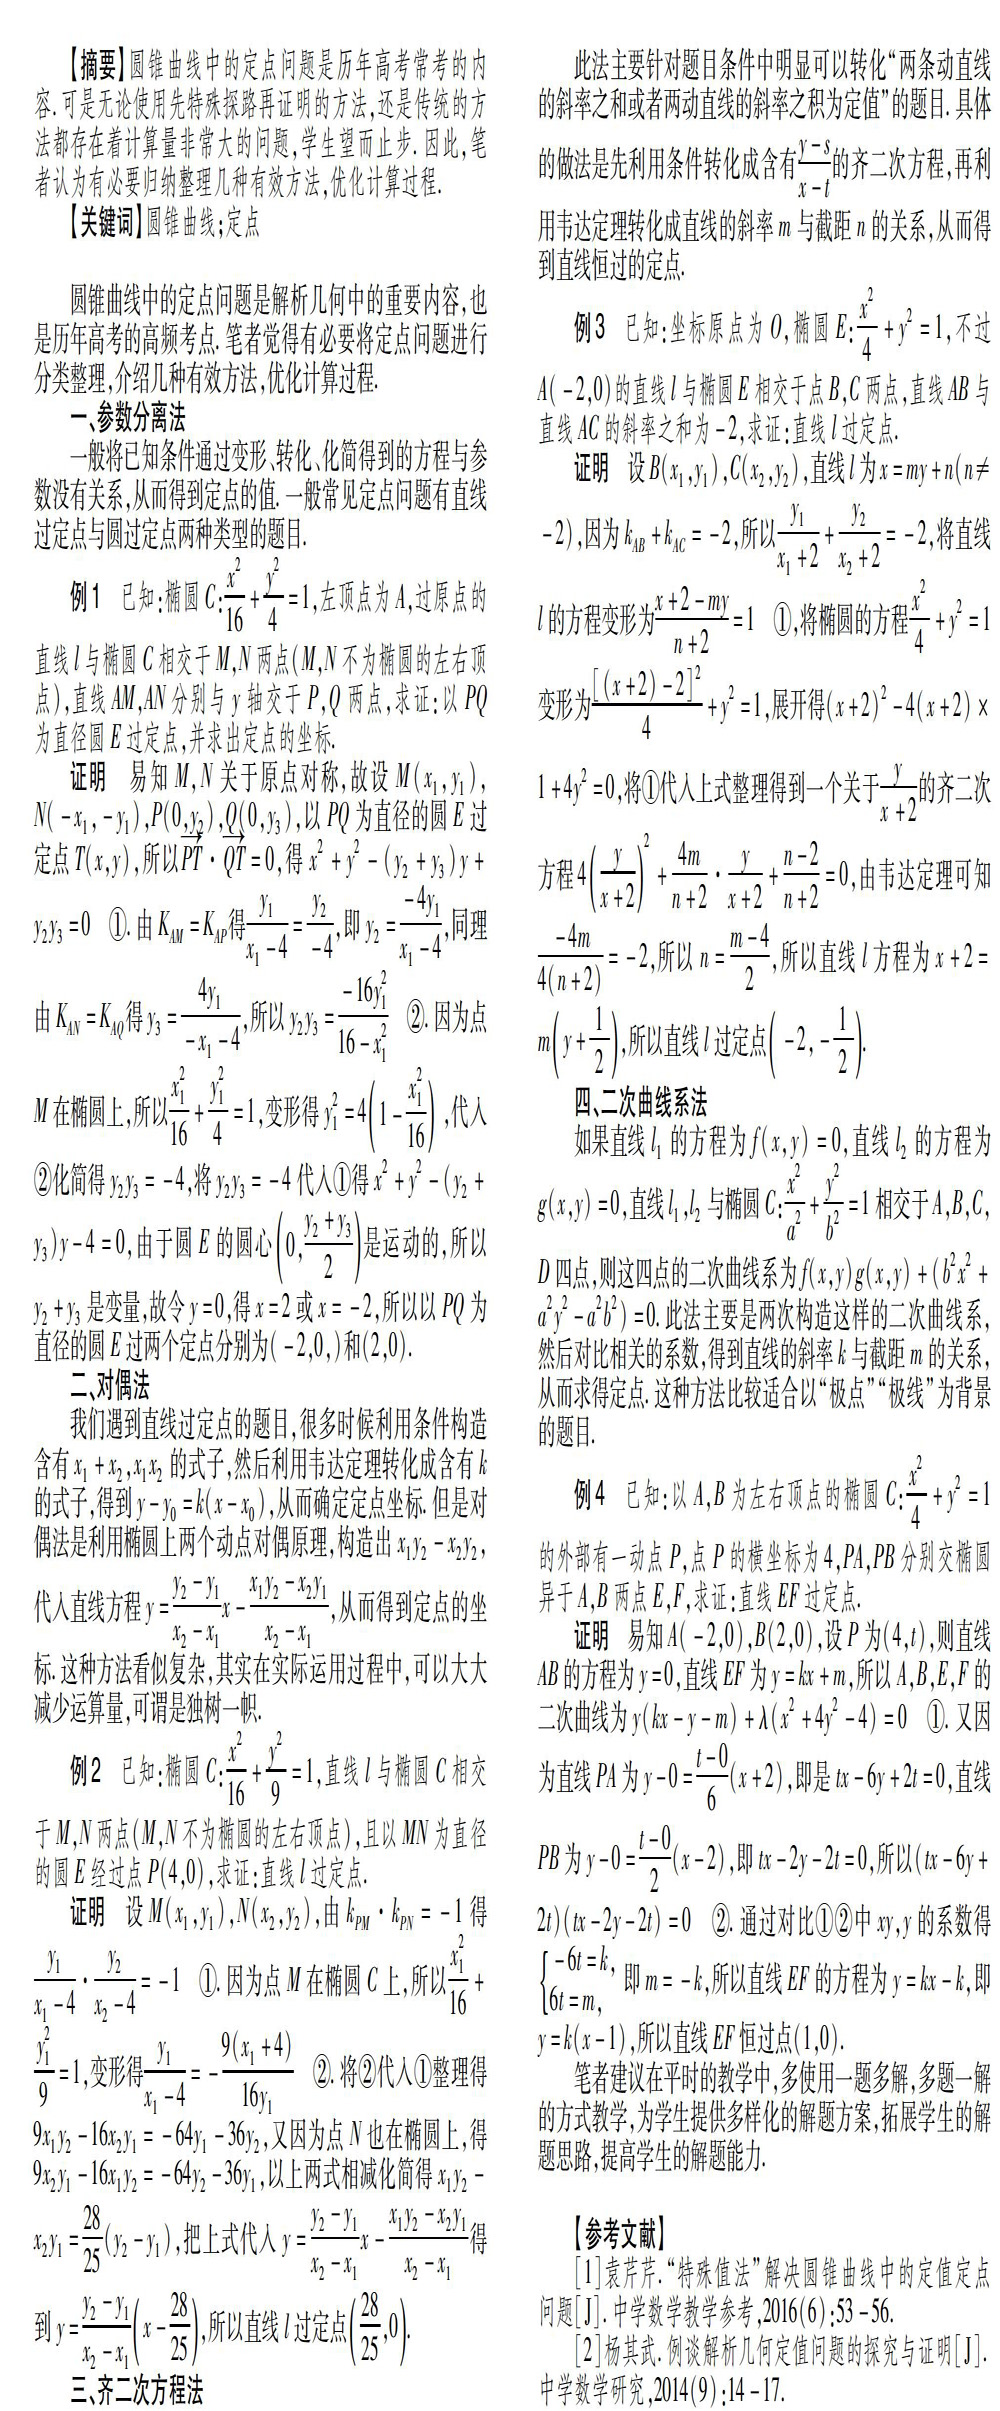 【摘要】圆锥曲线中的定点问题是历年高考常考的内
容.可是无论使用先特殊探路再证明的方法,还是传统的方
法都存在着计算量非常大的问题,学生望而止步.因此,笔
者认为有必要归纳整理几种有效方法,优化计算过程.
【关键词】圆锥曲线;定点
圆锥曲线中的定点问题是解析几何中的重要内容,也
是历年高考的高频考点.笔者觉得有必要将定点问题进行
分类整理,介绍几种有效方法,优化计算过程.
一、参数分离法
一般将已知条件通过变形、转化、化简得到的方程与参
数没有关系,从而得到定点的值.一般常见定点问题有直线
过定点与圆过定点两种类型的题目.
例1 已知:椭圆C:x²/16+y²/4=1,左顶点为A,过原点的
直线l与椭圆C相交于M,N两点(M,N不为椭圆的左右顶
点),直线AM,AN分别与y轴交于P,Q两点,求证:以PQ
为直径圆E过定点,并求出定点的坐标.
证明 易知M,N关于原点对称,故设M(x₁,y₁),
N(-x₁,-y₁),P(0,y₂),Q(0,y₃),以PQ为直径的圆E过
定点T(x,y),所以PT→·QT→=0,得x²+y²-(y₂+y₃)y+
y₂y₃=0 ①.由K_AM=K_AP得y₁/(x₁-4)=y₂/(-4),即y₂=(-4y₁)/(x₁-4),同理
由K_AN=K_AQ得y₃=4y₁/(-x₁-4),所以y₂y₃=(-16y₁²)/(16-x₁²) ②.因为点
M在椭圆上,所以x₁²/16+y₁²/4=1,变形得y₁²=4(1-x₁²/16),代入
②化简得y₂y₃=-4,将y₂y₃=-4代入①得x²+y²-(y₂+
y₃)y-4=0,由于圆E的圆心(0,(y₂+y₃)/2)是运动的,所以
y₂+y₃是变量,故令y=0,得x=2或x=-2,所以以PQ为
直径的圆E过两个定点分别为(-2,0,)和(2,0).
二、对偶法
我们遇到直线过定点的题目,很多时候利用条件构造
含有x₁+x₂,x₁x₂的式子,然后利用韦达定理转化成含有k
的式子,得到y-y₀=k(x-x₀),从而确定定点坐标.但是对
偶法是利用椭圆上两个动点对偶原理,构造出x₁y₂-x₂y₂,
代入直线方程y=(y₂-y₁)/(x₂-x₁)x-(x₁y₂-x₂y₁)/(x₂-x₁),从而得到定点的坐
标.这种方法看似复杂,其实在实际运用过程中,可以大大
减少运算量,可谓是独树一帜.
例2 已知:椭圆C:x²/16+y²/9=1,直线l与椭圆C相交
于M,N两点(M,N不为椭圆的左右顶点),且以MN为直径
的圆E经过点P(4,0),求证:直线l过定点.
证明 设M(x₁,y₁),N(x₂,y₂),由k_PM·k_PN=-1得
y₁/(x₁-4)·y₂/(x₂-4)=-1 ①.因为点M在椭圆C上,所以x₁²/16+
y₁²/9=1,变形得y₁/(x₁-4)=-9(x₁+4)/16y₁ ②.将②代入①整理得
9x₁y₂-16x₂y₁=-64y₁-36y₂,又因为点N也在椭圆上,得
9x₂y₁-16x₁y₂=-64y₂-36y₁,以上两式相减化简得x₁y₂-
x₂y₁=28/25(y₂-y₁),把上式代入y=(y₂-y₁)/(x₂-x₁)x-(x₁y₂-x₂y₁)/(x₂-x₁)得
到y=(y₂-y₁)/(x₂-x₁)(x-28/25),所以直线l过定点(28/25,0).
三、齐二次方程法
此法主要针对题目条件中明显可以转化“两条动直线
的斜率之和或者两动直线的斜率之积为定值”的题目.具体
的做法是先利用条件转化成含有(y-s)/(x-t)的齐二次方程,再利
用韦达定理转化成直线的斜率m与截距n的关系,从而得
到直线恒过的定点.
例3 已知:坐标原点为O,椭圆E:x²/4+y²=1,不过
A(-2,0)的直线l与椭圆E相交于点B,C两点,直线AB与
直线AC的斜率之和为-2,求证:直线l过定点.
证明 设B(x₁,y₁),C(x₂,y₂),直线l为x=my+n(n≠
-2),因为k_AB+k_AC=-2,所以y₁/(x₁+2)+y₂/(x₂+2)=-2,将直线
l的方程变形为(x+2-my)/(n+2)=1 ①,将椭圆的方程x²/4+y²=1
变形为[(x+2)-2]²/4+y²=1,展开得(x+2)²-4(x+2)×
1+4y²=0,将①代入上式整理得到一个关于y/(x+2)的齐二次
方程4(y/(x+2))²+4m/(n+2)·y/(x+2)+(n-2)/(n+2)=0,由韦达定理可知
-4m/4(n+2)=-2,所以n=(m-4)/2,所以直线l方程为x+2=
m(y+1/2),所以直线l过定点(-2,-1/2).
四、二次曲线系法
如果直线l₁的方程为f(x,y)=0,直线l₂的方程为
g(x,y)=0,直线l₁,l₂与椭圆C:x²/a²+y²/b²=1相交于A,B,C,
D四点,则这四点的二次曲线系为f(x,y)g(x,y)+(b²x²+
a²y²-a²b²)=0.此法主要是两次构造这样的二次曲线系,
然后对比相关的系数,得到直线的斜率k与截距m的关系,
从而求得定点.这种方法比较适合以“极点”“极线”为背景
的题目.
例4 已知:以A,B为左右顶点的椭圆C:x²/4+y²=1
的外部有一动点P,点P的横坐标为4,PA,PB分别交椭圆
异于A,B两点E,F,求证:直线EF过定点.
证明 易知A(-2,0),B(2,0),设P为(4,t),则直线
AB的方程为y=0,直线EF为y=kx+m,所以A,B,E,F的
二次曲线为y(kx-y-m)+λ(x²+4y²-4)=0 ①.又因
为直线PA为y-0=(t-0)/6(x+2),即是tx-6y+2t=0,直线
PB为y-0=(t-0)/2(x-2),即tx-2y-2t=0,所以(tx-6y+
2t)(tx-2y-2t)=0 ②.通过对比①②中xy,y的系数得
{-6t=k, 6t=m, 即m=-k,所以直线EF的方程为y=kx-k,即
y=k(x-1),所以直线EF恒过点(1,0).
笔者建议在平时的教学中,多使用一题多解,多题一解
的方式教学,为学生提供多样化的解题方案,拓展学生的解
题思路,提高学生的解题能力.
【参考文献】
[1]袁芹芹.“特殊值法”解决圆锥曲线中的定值定点
问题[J].中学数学教学参考,2016(6):53-56.
[2]杨其武.例谈解析几何定值问题的探究与证明[J].
中学数学研究,2014(9):14-17.